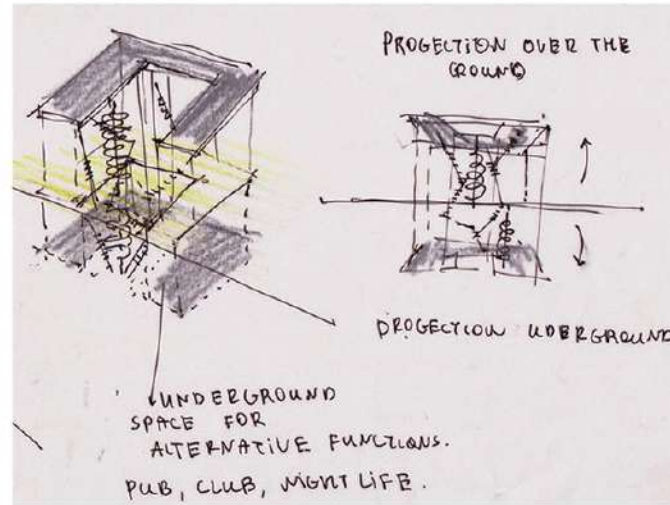 PROGECTION OVER THE
GROUND
PROGECTION UDERGROUND
UNDERGROUND
SPACE FOR
ALTERNATIVE FUNCTIONS.
PUB, CLUB, NIGHT LIFE.